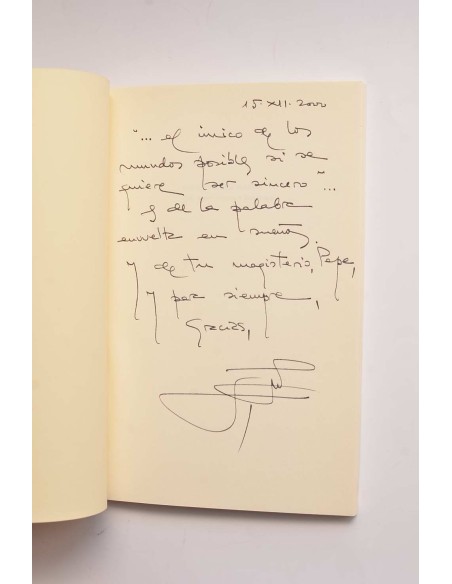 15-XII-2000
"... el único de los
mundos posible si se
quiere ser sincero"...
y de la palabra
envuelta en sueños.
Y de tu magisterio, Pepe,
y para siempre,
Gracias,